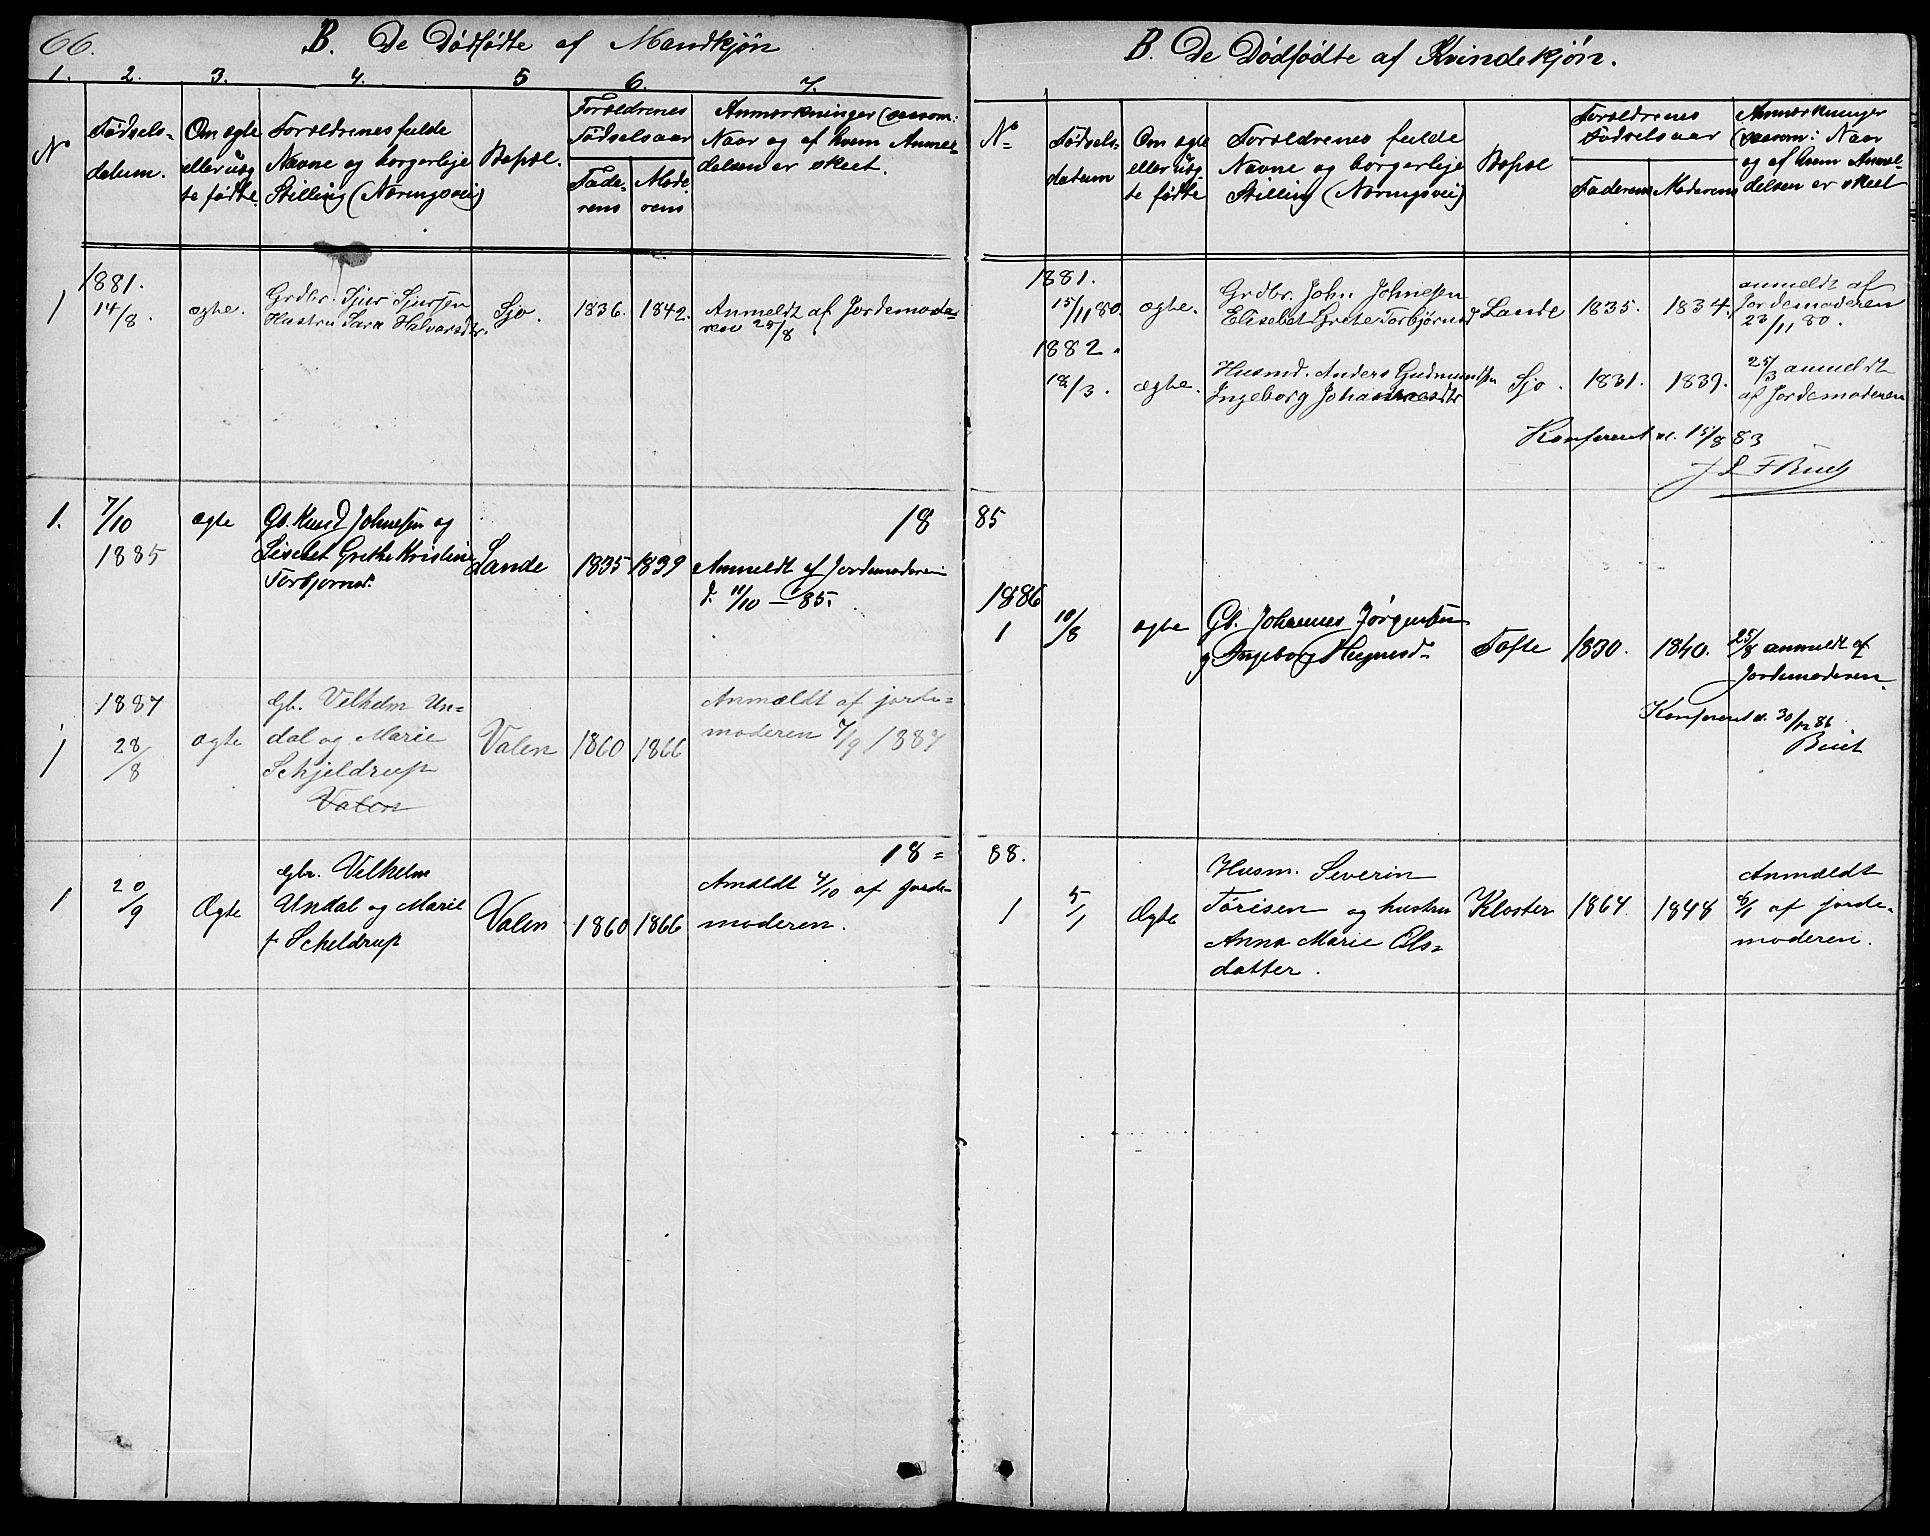 66.
B. De Dødfødte af Mandkjøn
1. 2. 3. 4. 5 6. 7.
No
Fødsels-
datum.
Om ægte
eller uæg
te fødte.
Forældrenes fulde
Navne og borgerlige
Stilling (Næringsvei)
Bopæl.
Forældrenes
Fødselsaar
Fade-
rens
Mode-
rens
Anmærkninger (saasom:
Naar og af hvem Anmel-
delsen er skeet.
1881.
1
14/8.
ægte.
Grdbr. Sjur Sjursen
Hustru Sara Halvorsdtr.
Sjo.
1836.
1842.
Anmeldt af Jordemode-
ren 25/8
1.
7/10
1885
ægte
Gb. Knud Johnesen og
Lisebet Grethe Kristine
Torbjørnsd.
Sande
1835
1839
18
Anmeldt af Jordemoderen
d. 11/10 - 85.
1887
1
28/8
ægte
Gb. Velhelm Un-
dal og Marie
Schjeldrup
Valen
Valen
1860
1866
Anmældt af jorde-
moderen 7/9 1887
18=
1
20/9
Ægte
Gbr. Velhelm
Undal og Marie
f. Scheldrup
Valen
1860
1866
Anældt 4/10 af jorde-
moderen.
B. De Dødfødte af Kvindekjøn.
No
Fødsels-
datum
Om ægte
eller uæg
te fødte
Forældrenes fulde
Navne og borgerlige
Stilling (Næringsvei)
Bopæl
Forældrenes
Fødselsaar
Faderens
Moderens
Anmærkninger
(saasom: Naar
og af hvem Anmel-
delsen er skeet
1881.
15/11 80.
ægte.
Grdbr. John Johnesen
Elisebet Grete Torbjørnsd
Sande
1835.
1834.
anmeldt af
Jordemoderen
23/11 80.
1882.
18/3.
ægte.
Husmd. Anders Gudmundsen
Ingeborg Johannesdtr
Sjo.
1831.
1839.
25/3 anmeldt
af Jordemoderen
Konfereret d. 15/8 83
85
1886
1
10/8
ægte
Gb. Johannes Jørgensen
og Ingeborg
Tofte
1830.
1840.
25/8 anmeldt af
Jordemoderen.
Konfereret d. 30/12 86
88.
1
5/1
Ægte
Husm. Severin
Tørisen og hustru
Anna Marie Ols-
datter.
Kloster
1864.
1848
Anmældt
6/1 af jorde-
moderen.